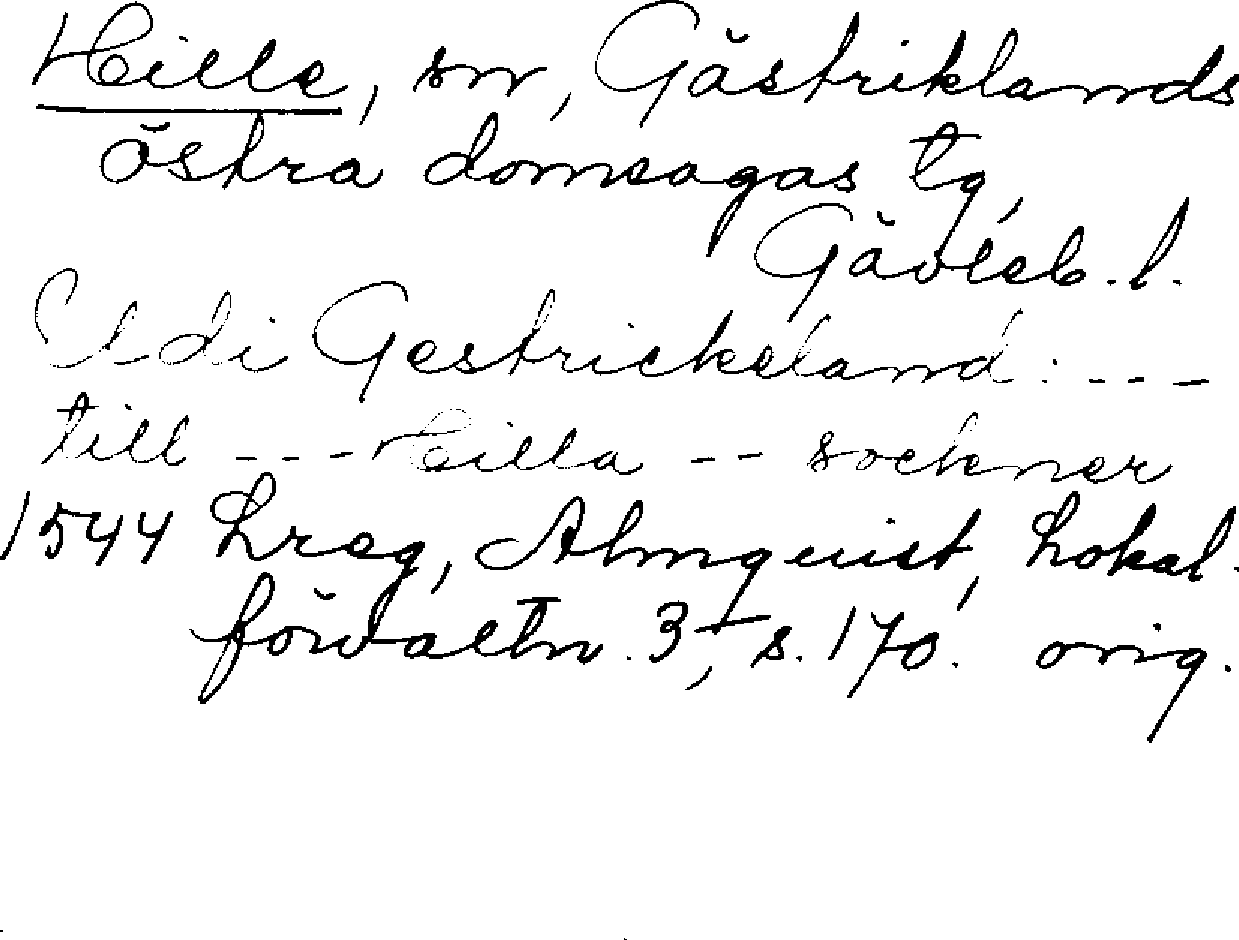 Hille, sn, Gästriklands
östra domsagas tg,
Gävleb. l.
Udi Gestrickeland: ---
till --- Hilla -- sockner
1544 Lreg, Almquist, Lokal-
förvaltn. 3, s. 170. orig.